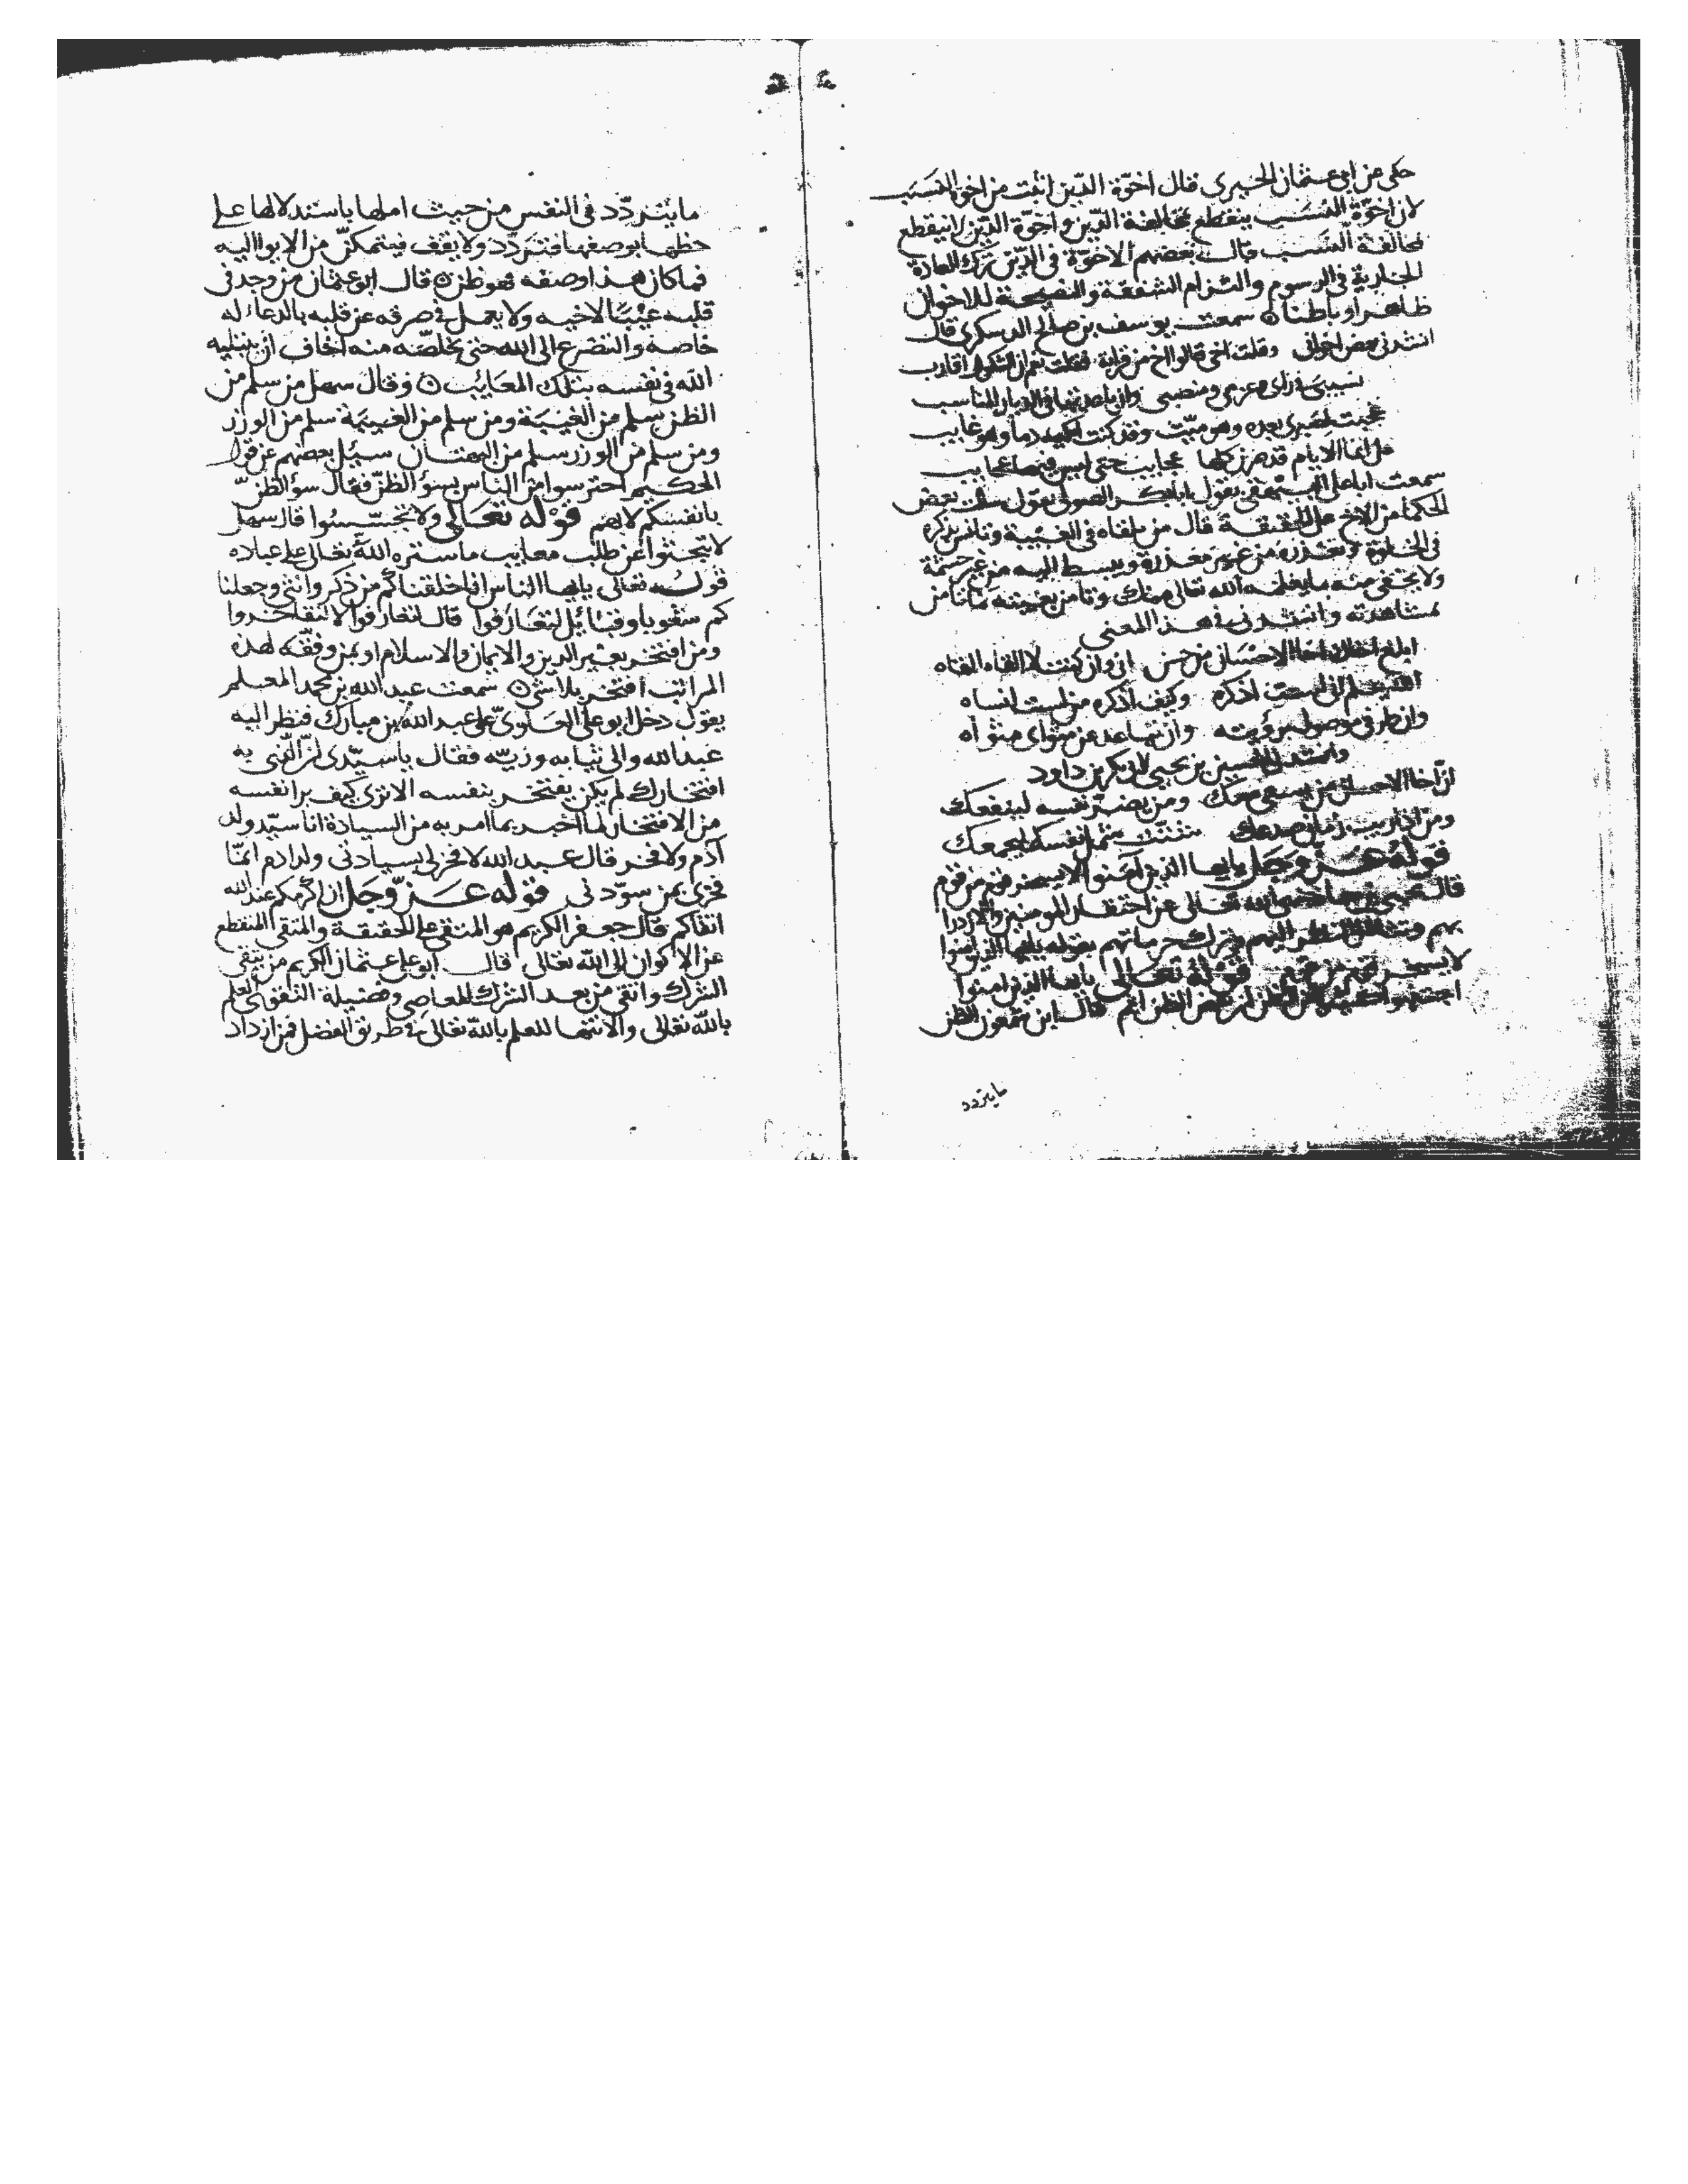 حكى عن ابى عثمان الحيرى قال اخوّة الدّين اثبت من اخوة النسب
لان اخوّة النسب ينقطع بمخالفة الدّين واخوّة الدّين لا ينقطع
لمخالفة النسب وقال بعضهم الاخوّة فى الدّين ترك العادة
الجارية فى الرسوم والتزام الشفقة والنصيحة للاخوان
ظاهرا وباطنا سمعت يوسف بن صالح الدسكرى قال
انشدنى بعض اخوانى وقلت اخى قالوا اخ من قرابة فقلت نعم ان الشكول اقارب
نسيبى فى راى وعزمى ومنصبى وان باعدتنا فى الديار المناسب
عجبت لصبرى بعده وهو ميّت وقد كنت ابكيه دما وهو غايب
على انما الايام قد صرن كلها عجايب حتى ليس فيها عجايب
سمعت ابا على البيهقى يقول ابا بكر الصولى يقول سالت بعض
الحكما من الاخ على الحقيقة قال من يلقاه فى الغيبة وتانس بذكره
فى الخلوة وتعذره من غير معذرة ويبسط اليه من غير حشمة
ولا يخفى منه ما يعلمه الله تعالى منك وتامن بغيبته ما تامن
بمشاهدته وانشدنى فى هذا المعنى
ابلغ اخاك اخا الاحسان من حسن انى وان كنت لا القاه القاه
الله يعلم انى لست اذكره وكيف اذكره من لست انساه
وان طرفى موصول برؤيته وان تباعد عن مثواى مثواه
وانشدنى الحسين بن يحيى لابى بكر بن داود
ان اخا الاحسان من يسعى معك ومن يضرّ نفسه لينفعك
ومن اذا ريب زمان صدعك شتّت شمل نفسه ليجمعك
قوله عزّ وجل يايها الذين آمنوا لا يسخر قوم من قوم
قال نهى الله تعالى عن احتقار المومنين والازدرا
بهم النظر اليهم وترك حرماتهم بقوله يايها الذين امنوا
لا يسخر قوم من قوم قوله تعالى يايها الذين امنوا
اجتنبوا كثيرا من الظن ان بعض الظن اثم قال ابن سمعون الظن
ما يتردد
ما يتردّد فى النفس من حيث املها باستدلالها على
حظها بوصفها فتتردّد ولا يقف فيتمكنّ من الابواليه
فما كان هذا وصفه فهو ظن قال ابو عثمان من وجد فى
قلبه عيبا لاخيه ولا يعمل فى صرفه عن قلبه بالدعاء له
خاصة والتضرع الى الله حتى يخلصّه منه اخاف ان يبتليه
الله فى نفسه بتلك المعايب وقال سهل من سلم من
الظن سلم من الغيبة ومن سلم من الغيبة سلم من الوزر
ومن سلم من الوزر سلم من البهتان سيل بعضهم عن قول
الحكيم احترسوا من الناس بسؤ الظنّ فقال سؤ الظنّ
بانفسكم لا بهم قوله تعالى ولا تجسّسوا قال سهل
لا تبحثوا عن طلب معايب ما ستره الله تعالى على عباده
قوله تعالى يايها الناس انا خلقناكم من ذكر وانثى وجعلنا
كم شعوبا وقبائل لتعارفوا قال لتعارفوا لا لتفاخروا
ومن افتخر بغير الدين والايمان والاسلام او بمن وفقّه لهذه
المراتب افتخر بلا شى سمعت عبد الله بن محمد المعلم
يقول دخل ابو على العلوىّ على عبد الله بن مبارك فنظر اليه
عبد الله والى ثيابه وزيّه فقال ياسيّدى انّ الّذى به
افتخارك لم يكن يفتخر بنفسه الا ترى كيف برا نفسه
من الافتخار لما اخبر بما امر به من السيادة انا سيّد ولد
آدم ولا فخر قال عبد الله لا فخر لى بسيادتى ولد ادم انمّا
فخرى بمن سوّدنى قوله عزّ وجل ان اكرمكم عند الله
اتقاكم قال جعفر الكريم هو المتقى على الحقيقة والمتقى المنقطع
عن الاكوان الى الله تعالى قال ابو على عثمان الكريم من يتقى
الشرك واتقى من بعد الشرك المعاصى وفضيلة التقوى العلم
بالله تعالى والانتها للعلم بالله تعالى فى طريق الفضل فمن ازداد